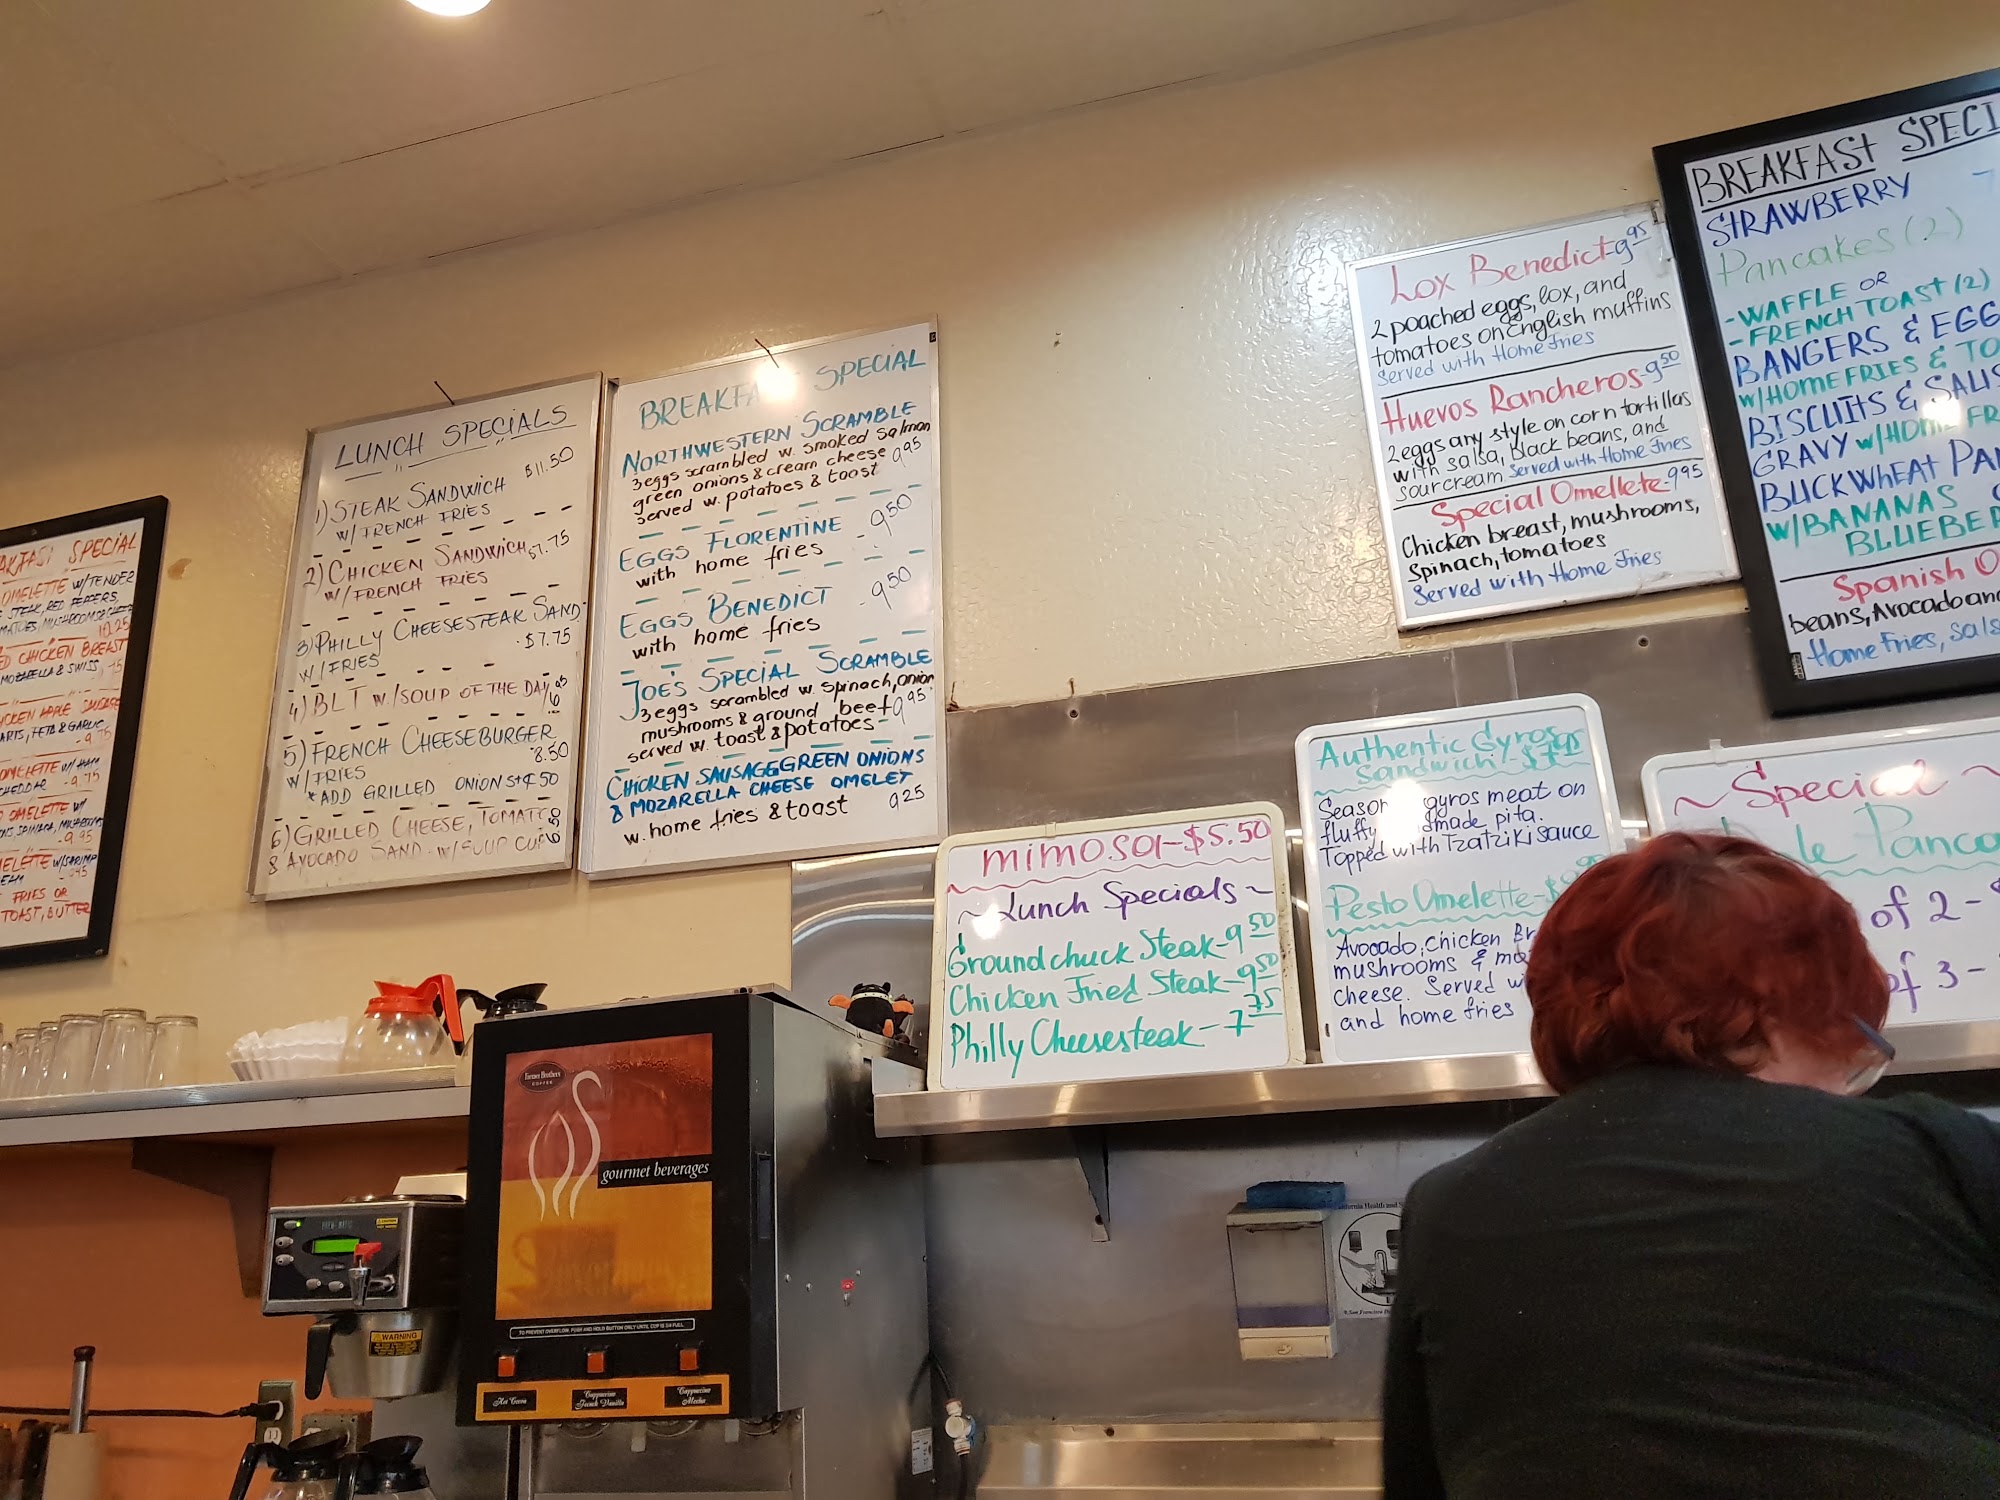 SPECIAL
OMELETTE W/TENDER
STEAK, RED PEPPERS,
10.25
CHICKEN BREAST
MOZARELLA & SWISS
CHICKEN APPLE SAUSAGE
FETA & GARLIC
-9.75
OMELETTE W/HAM
CHEDDAR -9.75
OMELETTE W/
SPINACH, MUSHROOMS
-9.95
OMELETTE W/SHRIMP
FRIES OR
TOAST, BUTTER
LUNCH SPECIALS
1) STEAK SANDWICH $11.50
W/FRENCH FRIES
2) CHICKEN SANDWICH $7.75
W/FRENCH FRIES
3) PHILLY CHEESESTEAK SAND.
W/FRIES $7.75
4) BLT W/SOUP OF THE DAY
5) FRENCH CHEESEBURGER
W/FRIES 8.50
*ADD GRILLED ONIONS
6) GRILLED CHEESE, TOMATO
& AVOCADO SAND. W/SOUP CUP 6.50
BREAKFAST SPECIAL
NORTHWESTERN SCRAMBLE
3 eggs scrambled w. smoked salmon
green onions & cream cheese 9.95
served w. potatoes & toast
EGGS FLORENTINE - 9.50
with home fries
EGGS BENEDICT - 9.50
with home fries
JOE'S SPECIAL SCRAMBLE
3 eggs scrambled w. spinach, onion
mushrooms & ground beef 9.95
served w. toast & potatoes -
CHICKEN SAUSAGE GREEN ONIONS
& MOZARELLA CHEESE OMELET
w. home fries & toast 9.25
Lox Benedict-9.95
2 poached eggs, lox, and
tomatoes on English muffins
Served with Home Fries
Huevos Rancheros-9.50
2 eggs any style on corn tortillas
with salsa, black beans, and
sour cream Served with Home Fries
Special Omellete-9.95
Chicken breast, mushrooms,
Spinach, tomatoes
Served with Home Fries
BREAKFAST SPECI
STRAWBERRY
Pancakes (2)
-WAFFLE OR
-FRENCH TOAST (2)
BANGERS & EGG
W/HOME FRIES & TO
BISCUITS & SAUS
GRAVY W/HOME FR
BUCKWHEAT PAN
W/BANANAS
BLUEBER
Spanish O
beans, Avocado and
Home Fries, Sals
mimosa-$5.50
~Lunch Specials~
Groundchuck Steak-9.50
Chicken Fried Steak-9.50
Philly Cheesesteak-7.75
Authentic Gyros
Sandwich-$7.95
Season gyros meat on
fluffy dmade pita.
Topped with Tzatziki sauce
Pesto Omelette-$
Avocado, chicken Br
mushrooms & mo
cheese. Served wi
and home fries
~Special~
le Panca
of 2-
of 3-
Farmer Brothers
COFFEE
gourmet beverages
TO PREVENT OVERFLOW, PUSH AND HOLD BUTTON ONLY UNTIL CUP IS 3/4 FULL.
Hot Cocoa
Cappuccino
French Vanilla
Cappuccino
Mocha
WARNING